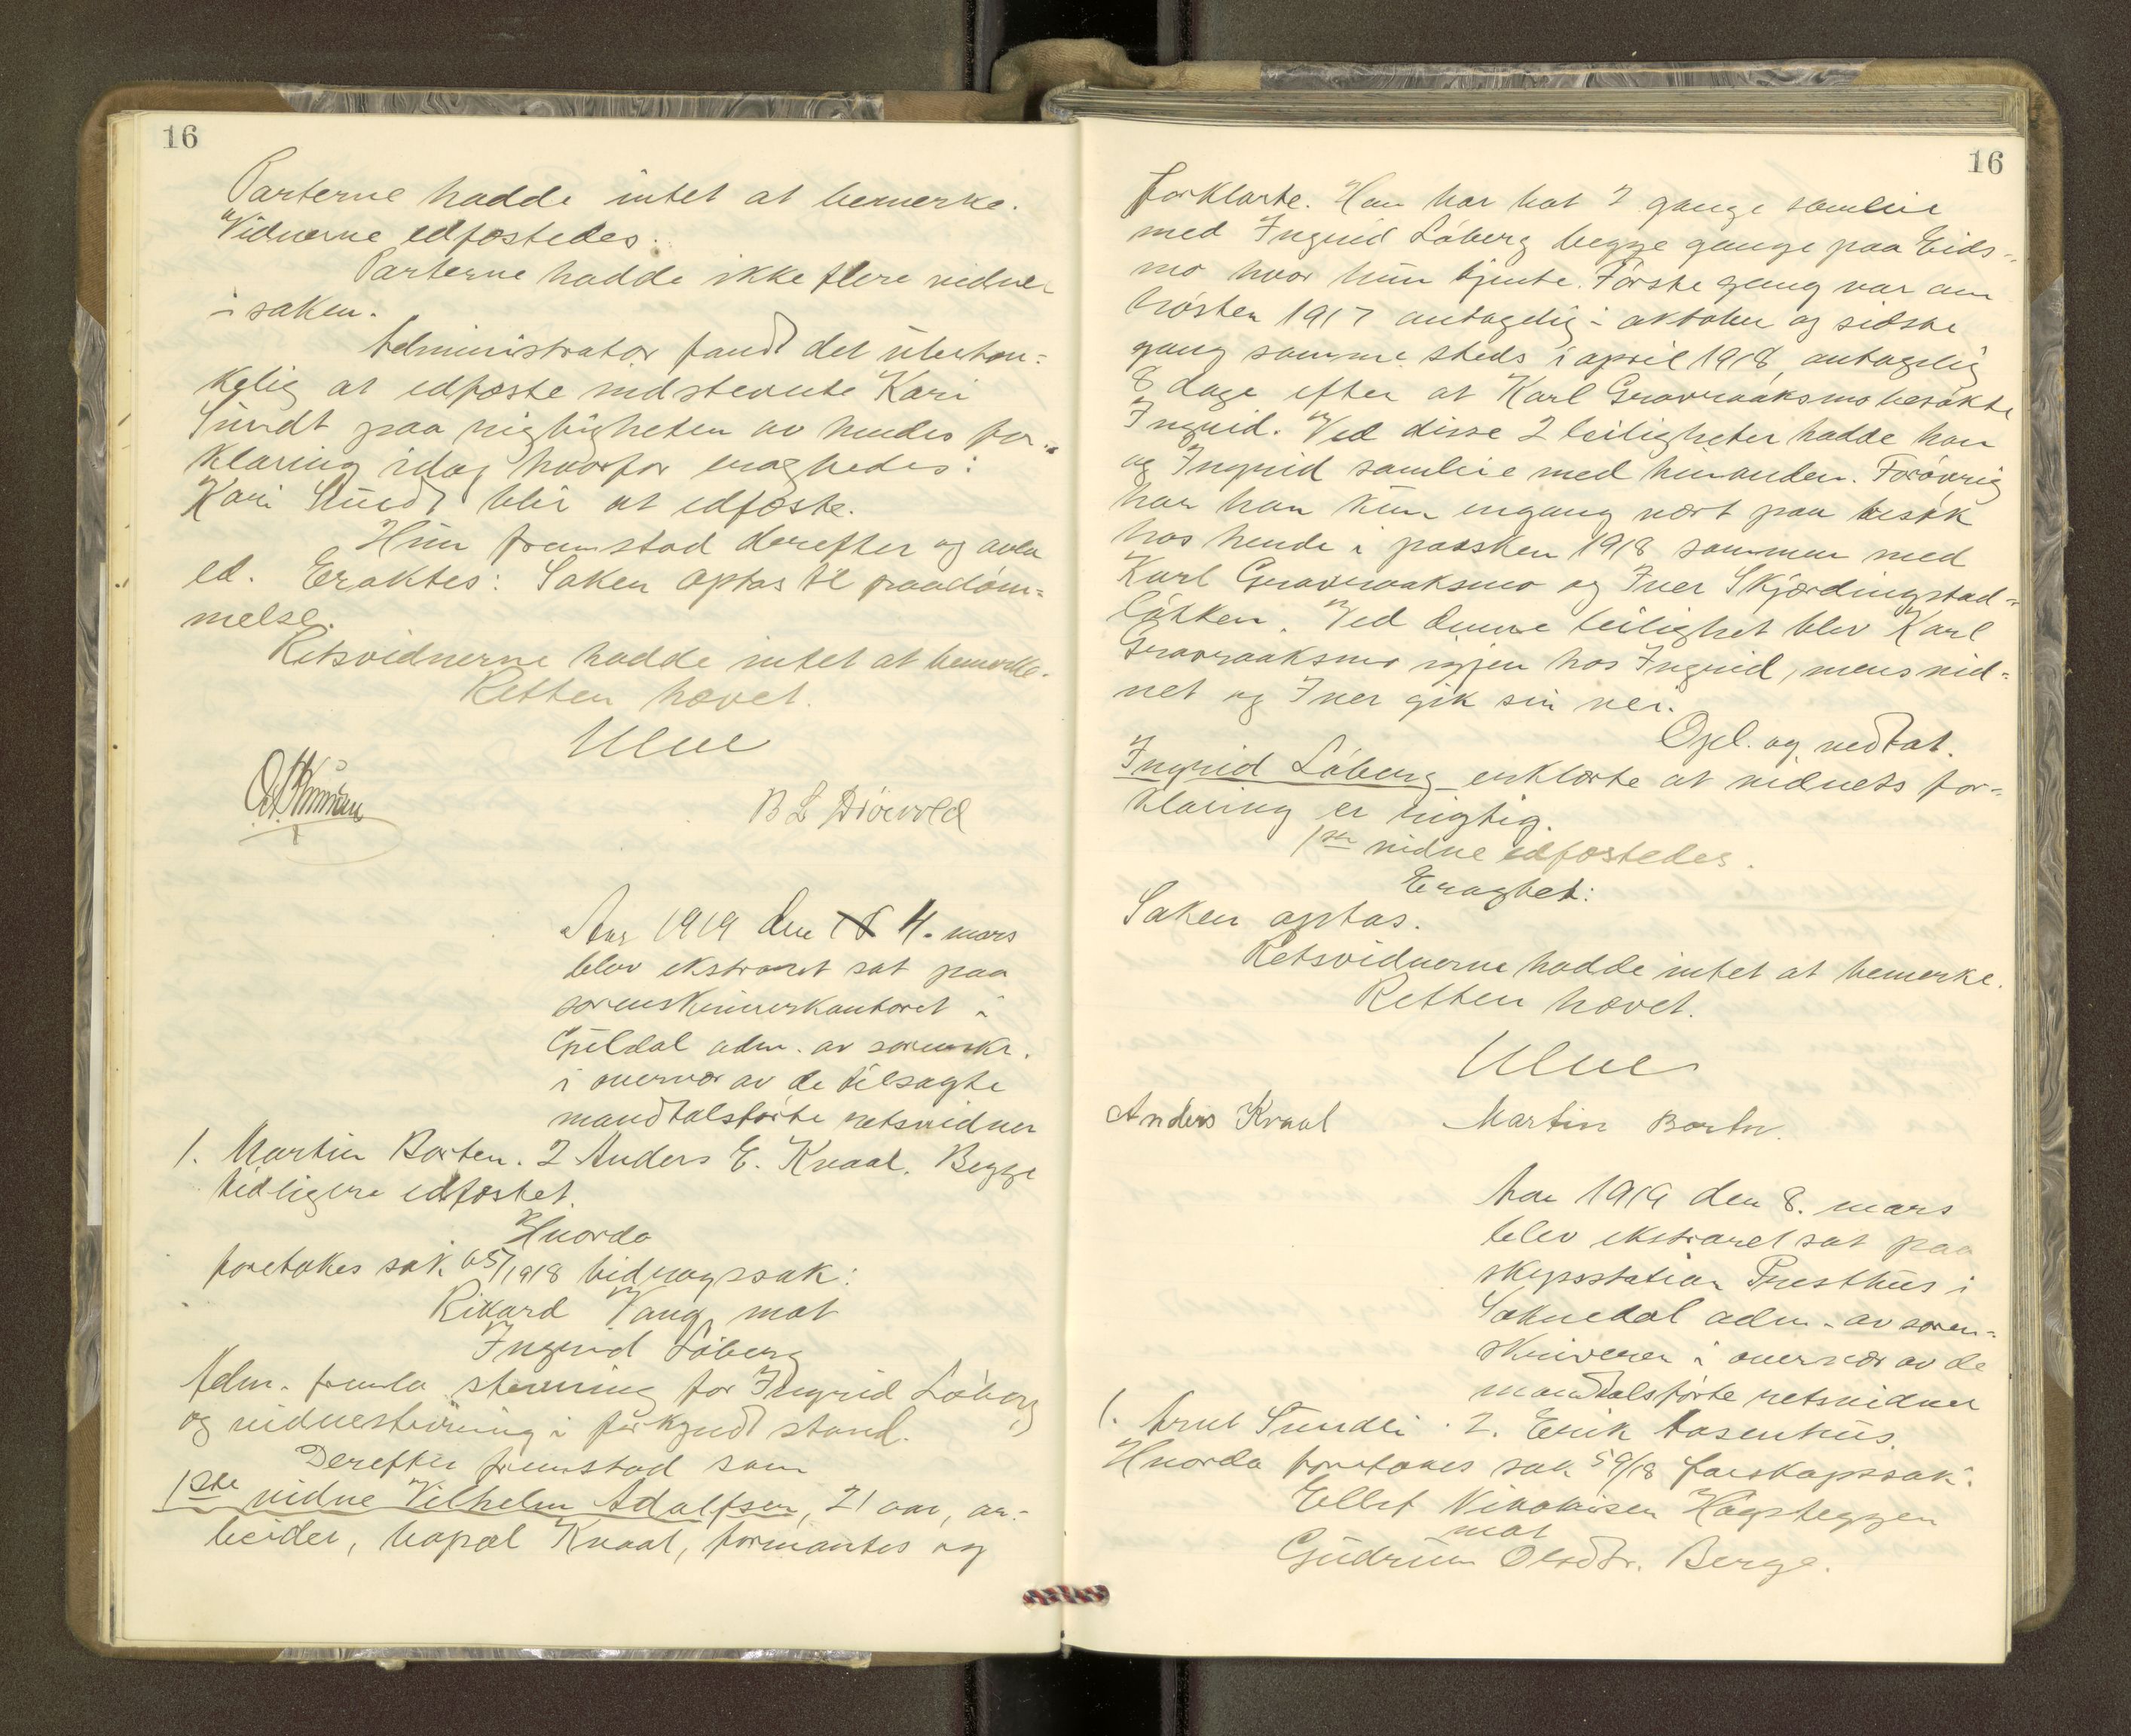 16
Parterne hadde intet at bemerke.
Vidnerne edfæstedes.
Parterne hadde ikke flere vidner
i saken.
Administrator fandt det ubetæn=
kelig at edfæste indstevnte Kari
Sundt paa rigtigheten av hendes for=
klaring idag hvorfor eragtedes:
Kari Sundt blir at edfæste.
Hun fremstod derefter og avla
ed. Eraktes: Saken optas til paadøm=
melse.
Retsvidnerne hadde intet at bemerke.
Retten hævet.
Ulve
B L Diørvold
Aar 1919 den 4. mars
blev ekstraret sat paa
sorenskriverkontoret i
Guldal adm. av sorenskr.
i overvær av de tilsagte
mandtalsførte retsvidner
1. Martin Borten. 2 Anders E. Kraal. Begge
tidligere edfæstet.
Hvorda
foretokes sak 65/1918 bidragssak:
Rikard Vang mot
Ingrid Løberg
Adm. fremla stevning for Ingrid Løberg
og vidnestevning i forkyndt stand.
Derefter fremstod som
1ste vidne Vilhelm Adolfsen, 21 aar, ar=
beider, bopæl Kraal, formantes og
16
forklarte. Han har hat 2 gange samleie
med Ingrid Løberg begge gange paa Eids=
mo hvor hun tjente. Første gang var om
høsten 1917 antagelig i oktober og sidste
gang samme steds i april 1918, antagelig
8 dage efter at Karl Gravraaksmo besøkte
Ingrid. Ved disse 2 leiligheter hadde han
og Ingrid samleie med hinanden. Forøvrig
har han kun engang vært paa besøk
hos hende i paasken 1918 sammen med
Karl Gravraaksmo og Iver Skjærdingstad=
løkken. Ved denne leilighet blev Karl
Gravraaksmo igjen hos Ingrid, mens vid=
net og Iver gik sin vei.
Opl. og vedtat.
Ingrid Løberg erklærte at vidnets for=
klaring er rigtig.
1ste vidne edfæstedes.
Eragtet:
Saken optas.
Retsvidnerne hadde intet at bemerke.
Retten hævet.
Ulve
Anders Kraal Martin Borten.
Aar 1919 den 8. mars
blev ekstraret sat paa
skysstation Presthus i
Soknedal adm. av soren=
skriveren i overvær av de
mandtalsførte retsvidner
1. Arnt Sundli. 2. Erik Aasenhus.
Hvorda foretokes sak 59/18 farskapssak:
Ellef Nikolaisen Hageskeggen
mot
Gudrun Olsdtr. Berge.